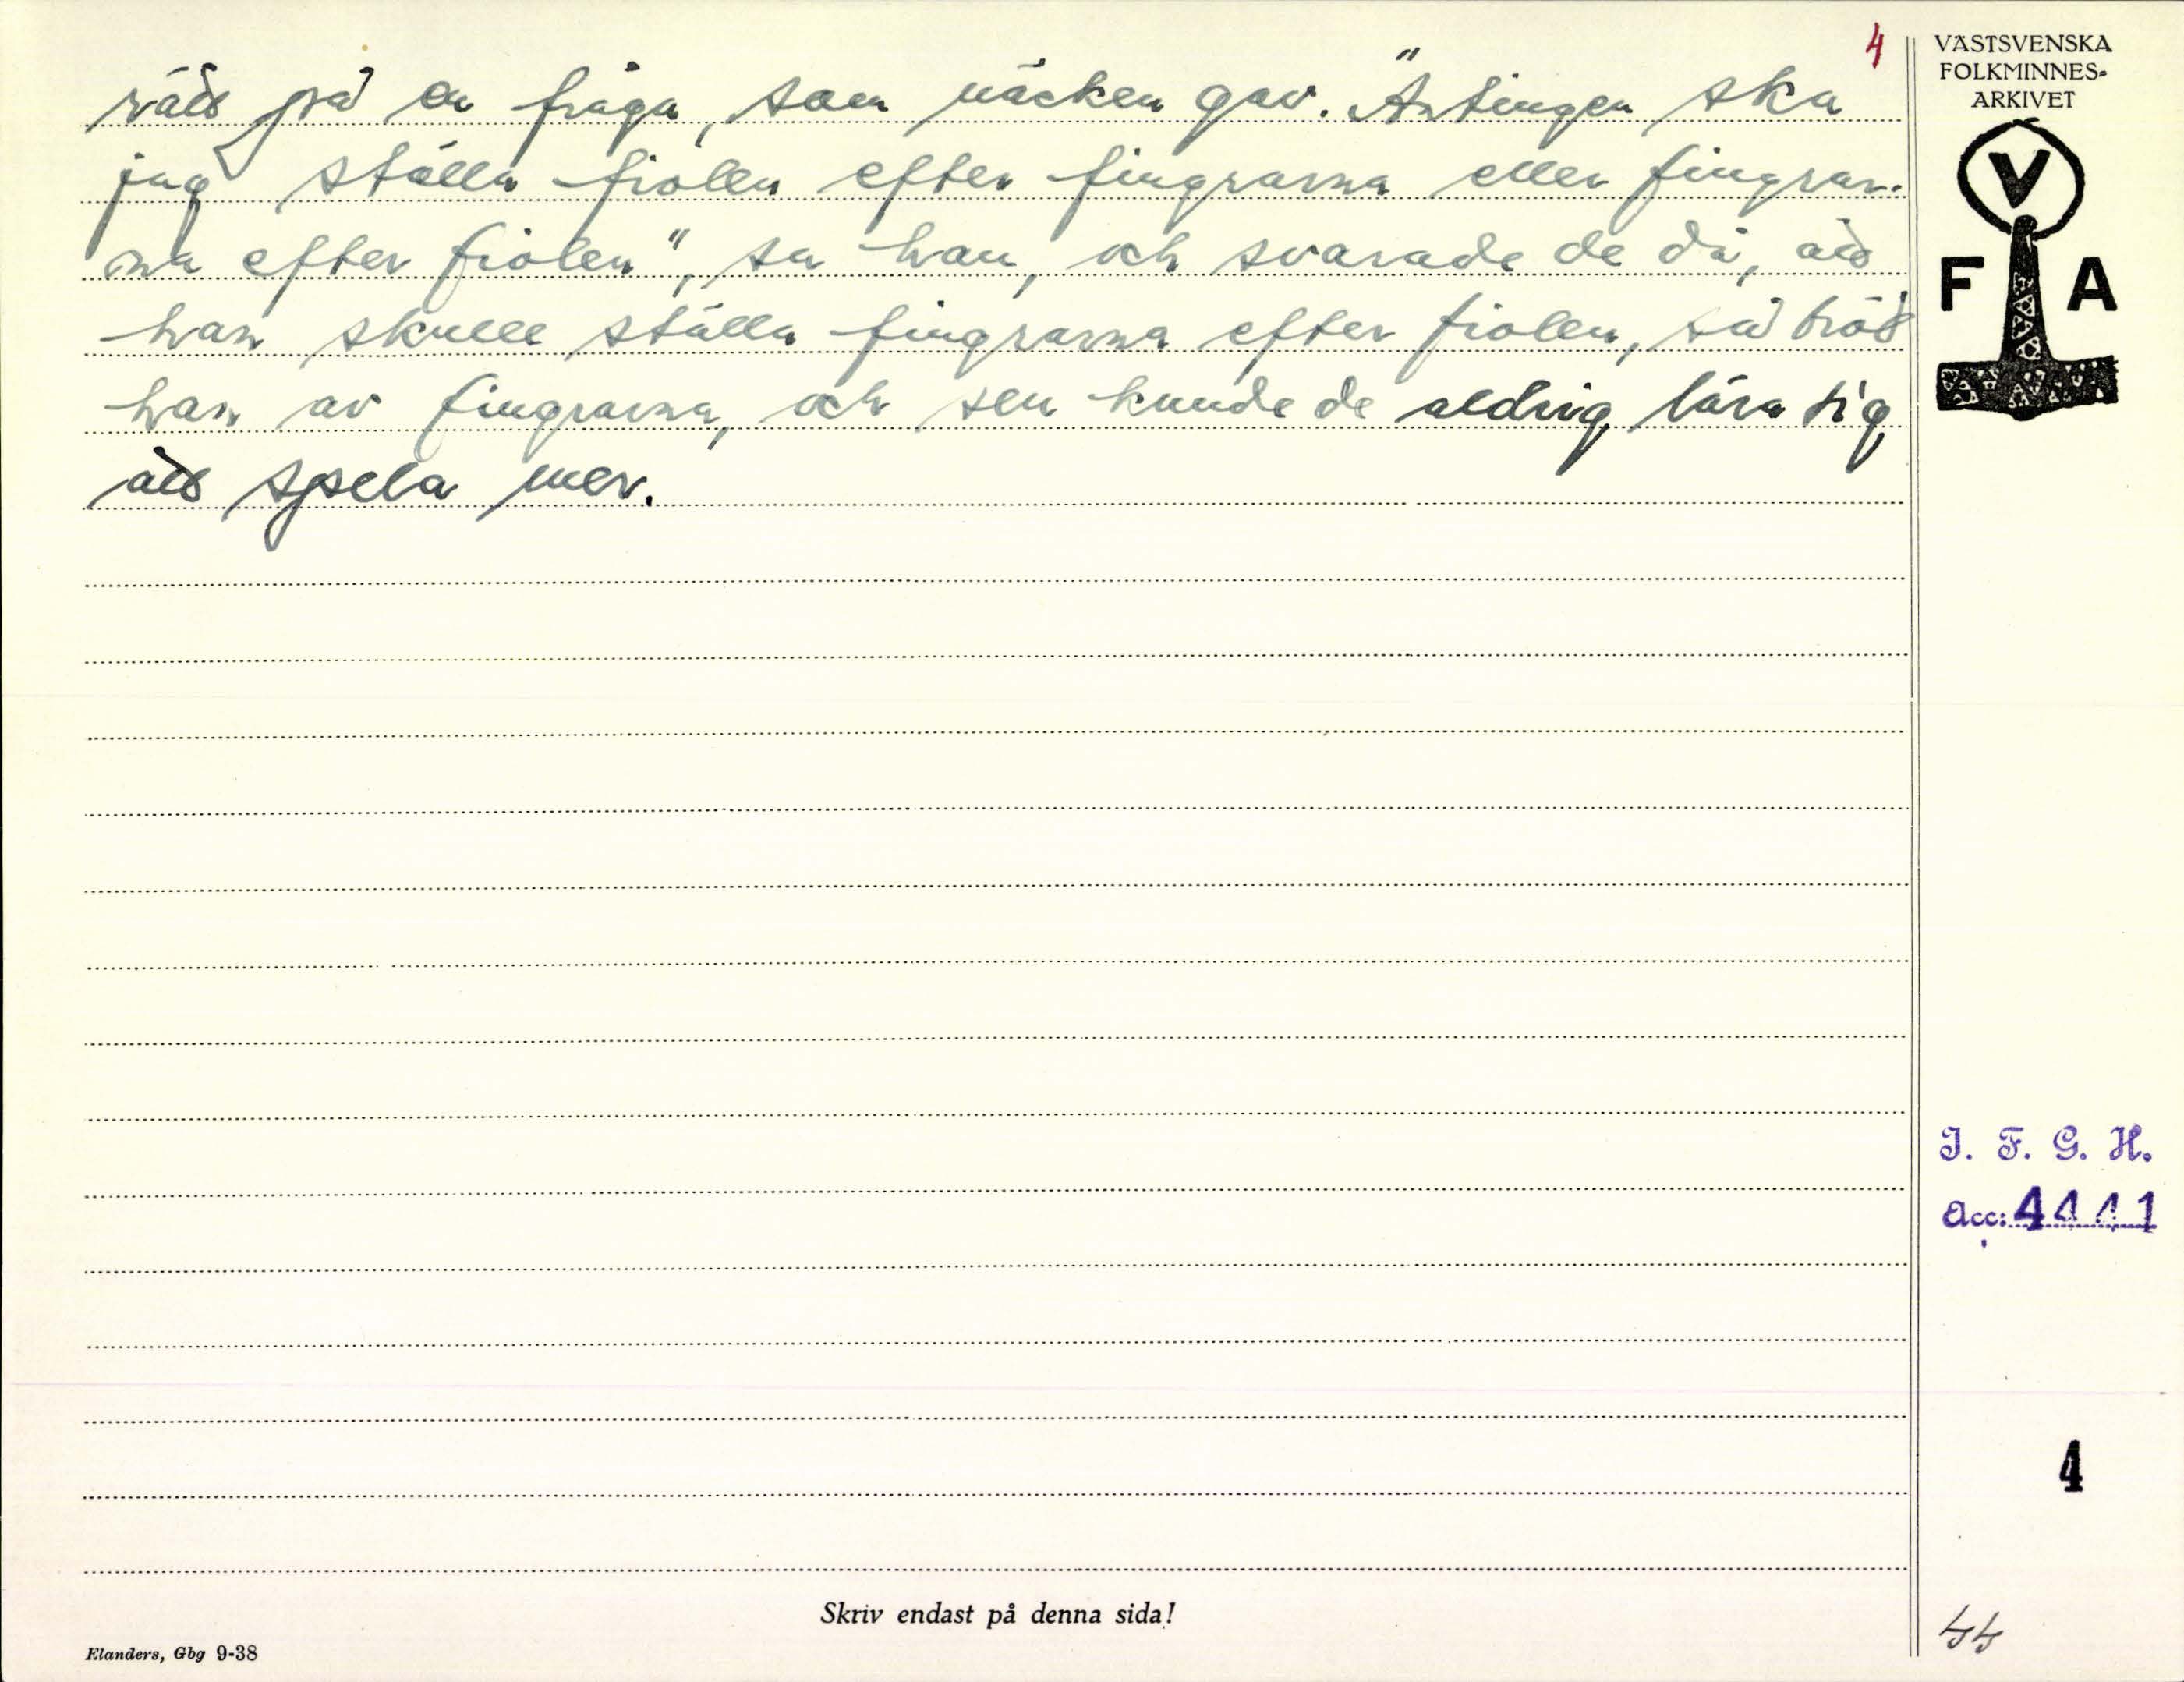 4
rätt på en fråga, som näcken gav. "Antingen ska
jag ställa fiolen efter fingrarna eller fingrar-
na efter fiolen", sa han, och svarade de då, att
han skulle ställa fingrarna efter fiolen, så bröt
han av fingrarna, och sen kunde de aldrig lära sig
att spela mer.
VÄSTSVENSKA
FOLKMINNES-
ARKIVET
V
F A
I. F. G. H.
Acc: 4441
4
Skriv endast på denna sida!
Elanders, Gbg 9-38